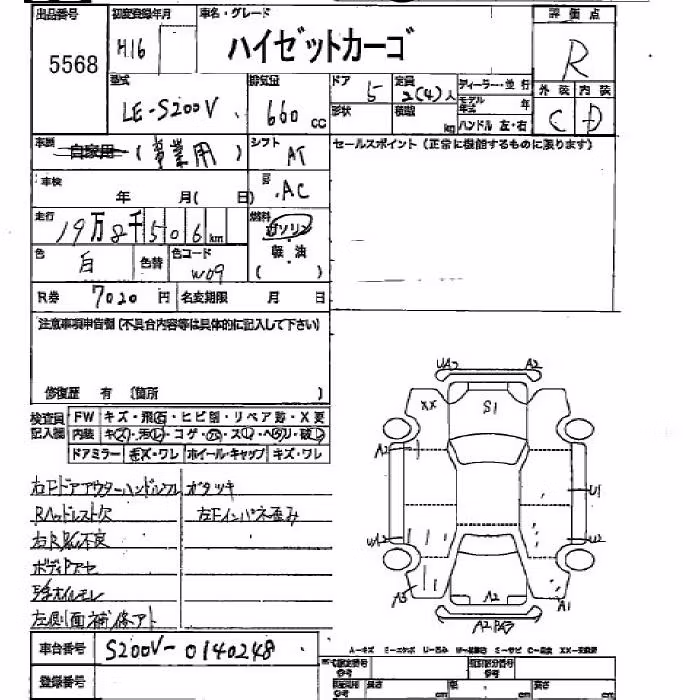 出品番号 初度登録年月 車名・グレード 評価点
5568 H16 ハイゼットカーゴ R
型式 排気量 ドア 定員 ディーラー・並行 外装 内装
LE-S200V 660cc 5 2(4)人 モデル年式 年 C D
形状 積載 kg ハンドル 左・右
車歴 自家用 (事業用) シフト AT セールスポイント(正常に機能するものに限ります)
車検 年 月( 日) AC
走行 19万8千506km 燃料 ガソリン
色 白 色替 色コード W09 軽油 ( )
R券 7020円 名変期限 月 日
注意事項申告欄(不具合内容等は具体的に記入して下さい)
修復歴 有 (箇所 )
検査員記入欄 FW キズ・飛石・ヒビ割・リペア跡・X要
内装 キズ・汚レ・コゲ・穴・スレ・ヘタリ・破レ
ドアミラー キズ・ワレ ホイール・キャップ キズ・ワレ
右Fドアアウターハンドル ガタツキ
Rヘッドレスト欠 左Fインパネ歪み
ボディアセ
左側面補修アト
車台番号 S200V-0140248
登録番号
UA2 A2
XX S1
A2 U1
UA2 U2
A3 A2 A1
A-キズ E-エクボ U-凹ミ
長さ cm 幅 cm 高さ cm